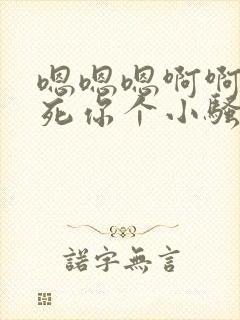 嗯嗯嗯啊啊
死你个小骚
諾字無言